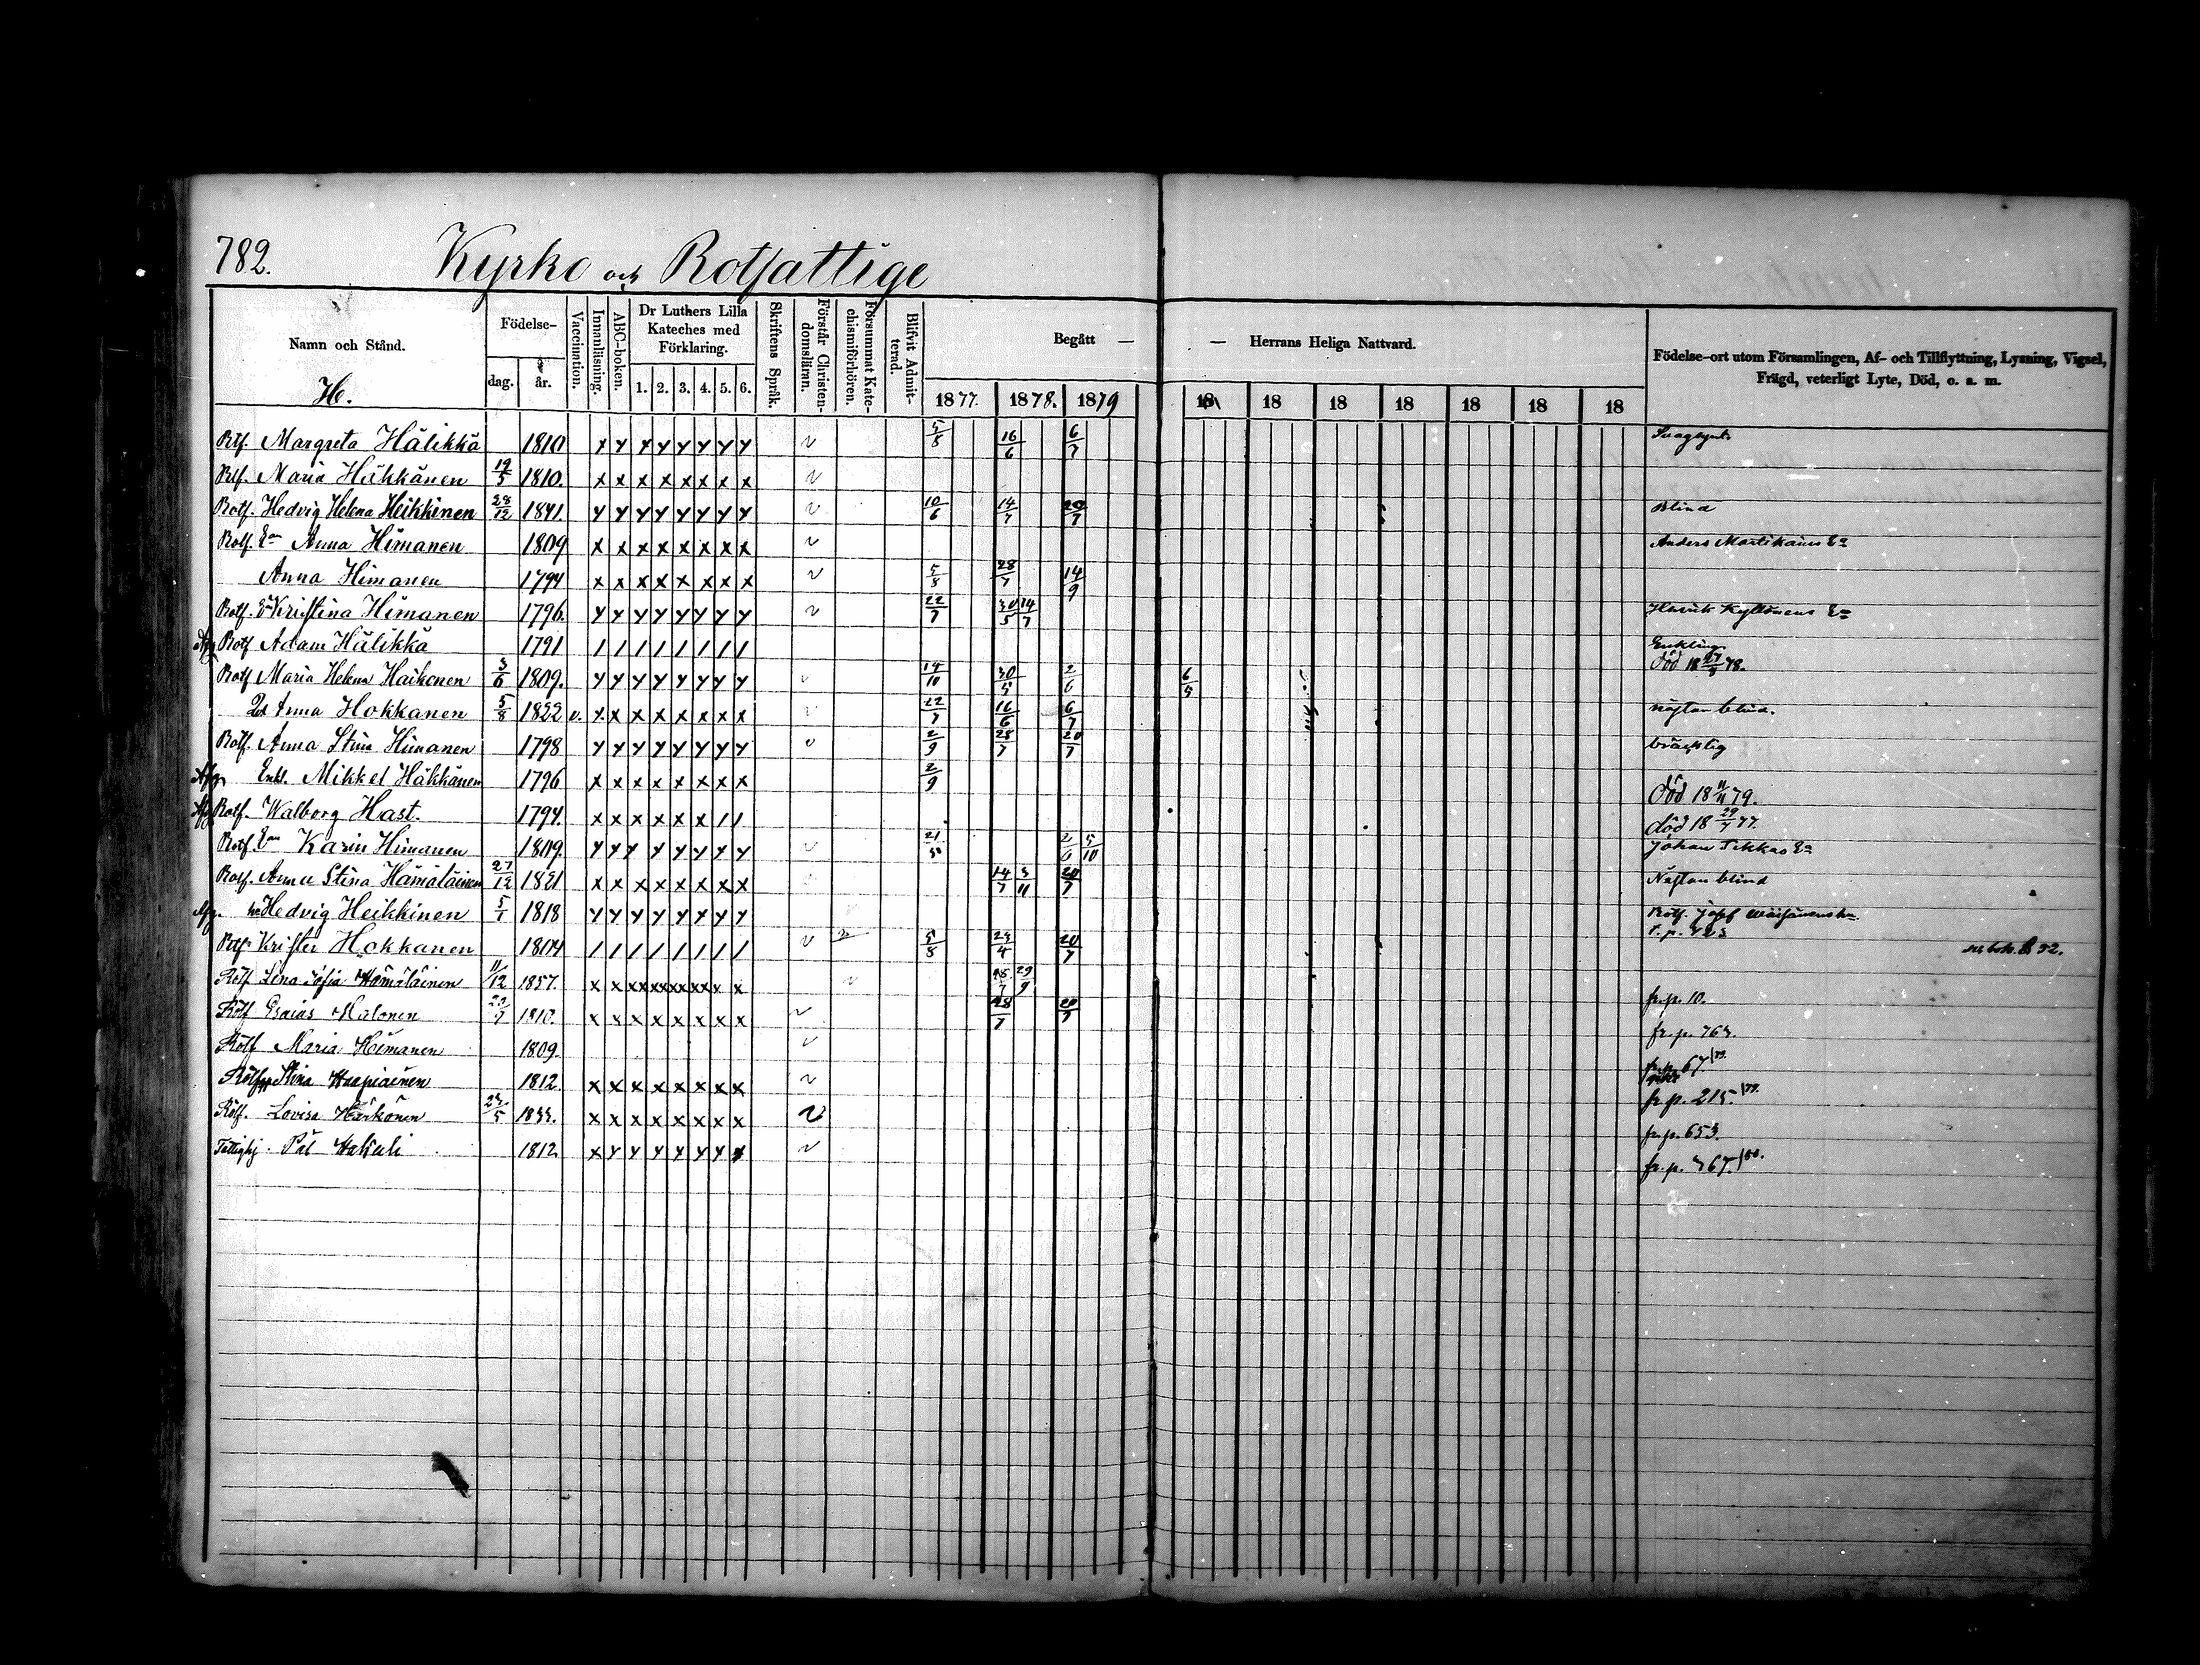 782. Kyrko och Rotfattige
Namn och Stånd.
H.
Födelse-
dag. år.
Vaccination.
Innanläsning.
ABC-boken.
Dr Luthers Lilla
Kateches med
Förklaring.
1. 2. 3. 4. 5. 6.
Skriftens Språk.
Förstår Christen-
domsläran.
Försummat Kate-
chismiförhören.
Blifvit Admit-
terad.
Begått — — Herrans Heliga Nattvard.
1877. 1878. 1879 18 18 18 18 18 18 18
Födelse-ort utom Församlingen, Af- och Tillflyttning, Lysning, Vigsel,
Frägd, veterligt Lyte, Död, o. s. m.
Rtf. Margreta Hälikkä 1810 x y x y y y y y 5/8 16/6 6/7 Svagsynt
Rtf. Maria Häkkänen 19/5 1810. x x x x x x x x
Rotf. Hedvig Helena Heikkinen 28/12 1841. y y y y y y y y 10/6 14/7 20/7 Blind
Rotf. Ean Anna Himanen 1809 x x x x x x x x Anders Martikains Ea
Anna Himanen 1794 x x x x x x x x 5/8 28/7 14/9
Rotf. Ea Kristina Himanen 1796. y y y y y y y y 22/7 30/5 14/7 Henrik Kyllönens Ea
Afg Rotf Adam Hälikkä 1791 / / / / / / / / Enkling
död 18 27/3 78.
Rotf Maria Helena Haikonen 3/6 1809. y y y y y y y y 14/10 30/5 2/6 6/5
Anna Hokkanen 5/8 1822 v. x x x x x x x x 22/7 16/6 6/7 nästan blind.
Rotf. Anna Stina Himanen 1798 y y y y y y y y 2/9 28/7 20/7 bräcklig
Afg Enkl. Mikkel Häkkänen 1796 x x x x x x x x 2/9 död 18 11/11 79.
Afg Rotf. Walborg Hast. 1794. x x x x x x / / död 18 29/7 77.
Rotf. Ean Karin Himanen 1809. y y y y y y y y 21/5 2/6 5/10 Johan Tikkas Ea
Rotf. Anna Stina Hämäläinen 27/12 1821 x x x x x x x x 14/7 3/11 20/7 Nästan blind
Afg. Hedvig Heikkinen 5/1 1818 y y y y y y y y Rotf. Josef
Rotf. Krister Hokkanen 1804 / / / / / / / / 5/8 23/4 20/7
Rotf Lena Sofia Hämäläinen 11/12 1857. 28/7 29/9 fr. p. 10.
Rotf Esaias Halonen 1810. x x x x x x x x 28/7 20/7 fr. p. 763.
Rotf Maria Himanen 1809. fr. p. 67/79.
Stina Haapiainen 1812 x x x x x x x x fr. p. 215./79.
Rotf. Lovisa Härkönen 1833. x x x x x x x x fr. p. 653.
Fattighj. Pål Hakuli 1812 x y y y y y y fr. p. 767./80.